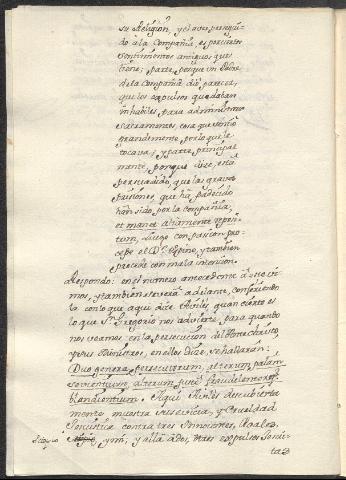 su Religion, y el aver persegui-
do à la Compañia, es por ciertos
sentimientos antiguos que
tiene; parte, porque un Padre
de la Compañia dió parecer,
que los expulsos quedaban
inhabiles, para administrar
sacramentos, cosa que sintió
grandemente, por lo que le
tocava; y parte principal
mente, porque dize, està
persuadido, que las graves
passiones, que ha padecido
han sido, por la Compañia;
et manet altamente repos-
tum, luego con passion pro-
cede el D.r Espino, y tambien
procede con mala intencion.
Respondo: en el numero antecedente
mos, y tambien se verà adelante,
lo con lo que aqui dize Avilès, quan cierto es
lo que S.n Gregorio nos advierte, para quando
nos veamos, en la persecucion del Antechristo,
y sus Ministros, en ellos dize, se hallaràn:
Duo genera persecutorum, alterum, palam
sævientium, alterum, fraudulenter
blandientium. Aqui Avilès descubierta
mente muestra su sevicia, y crueldad
Jesuitica contra tres Innocentes,
y mi; y allà à dos, ò tres expulsos Jesui-
tas